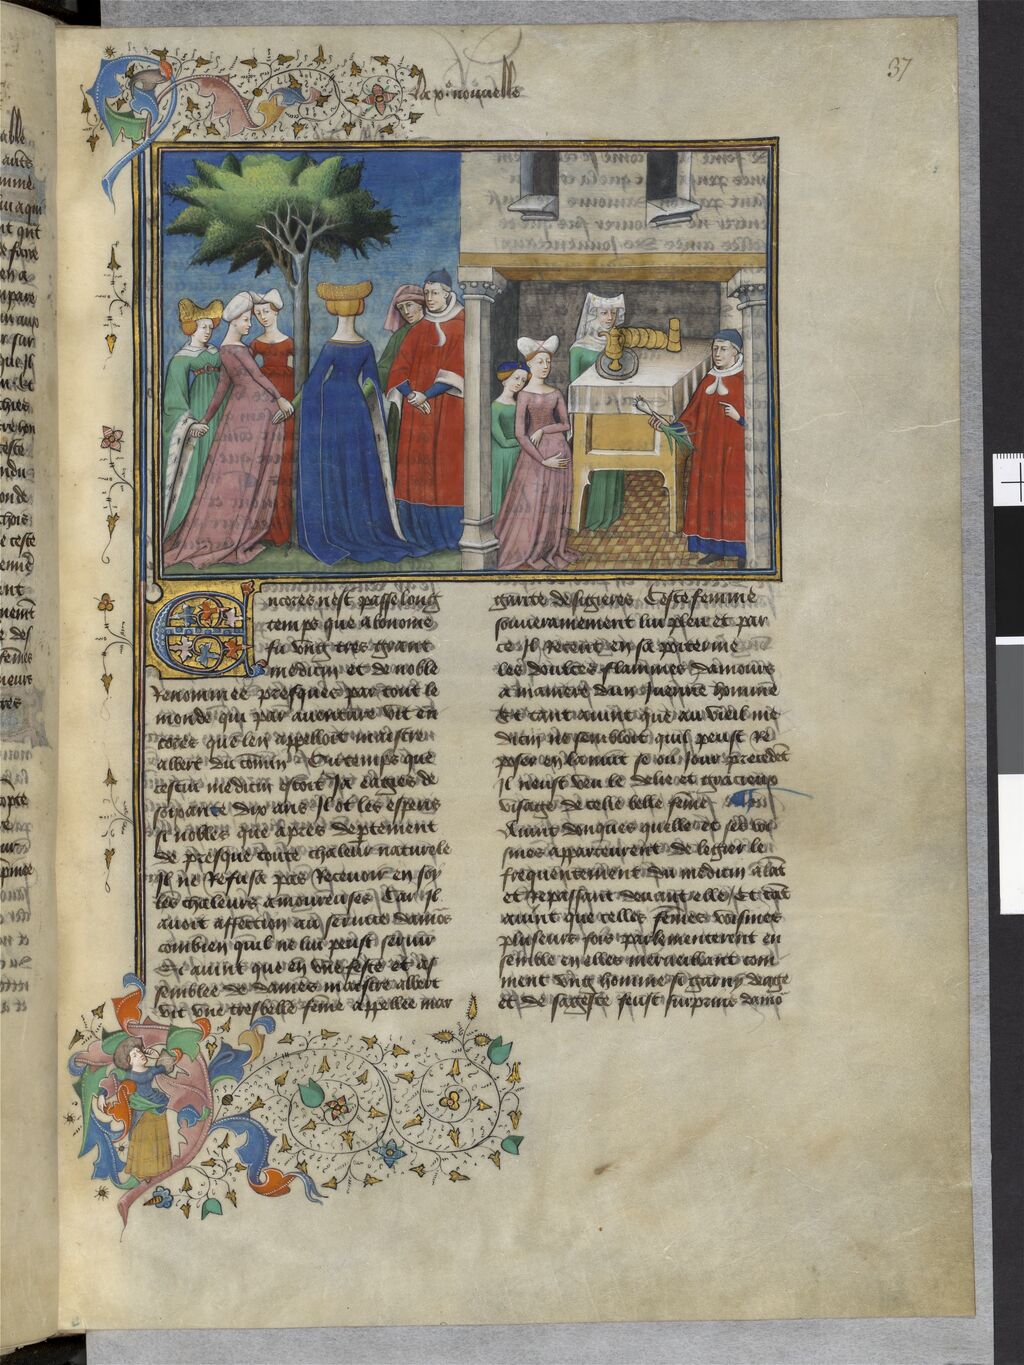 37
la xe nouvelle
Encores nest passe long
temps que a bonome
fu ung tres grant
medicin et de noble
Renommee presques par tout le
monde qui par aventure vit en
cores que len appelloit maistre
albert Ou temps que
cestui medicin estoit Ja eagies de
soixante dix ans Il ot les esperis
si nobles que apres departement
de presque toute chaleur naturele
Il ne Refusa pas Recevoir en soy
les chaleurs amoureuses Car Il
avoit affection au service damors
combien quil ne lui peust servir
Et avint que en une feste et as
semblee de dames maistre albert
vit une tresbelle feme appellee mar
garite de sigieres Ceste femme
souverainement lui pleu et par
ce Il Recent en sa poictrine
les doulces flammes damours
a maniere dun Juenne homme
Et tant avint que au vieil me
dicin ne sembloit quil peust Re
poser en la nuit se ou Jour precedent
Il neust veu le delie et gracieux
visage de celle belle feme
Avint donques quelle et ses voi
sines apparceurent de legier le
frequentement du medicin alant
et repassant devant elle Et tant
avint que celles femes voisines
plusieurs fois parlementerent en
semble en elles merveillant com
ment ung homme si garny deage
et de sagesse feust surprins damo